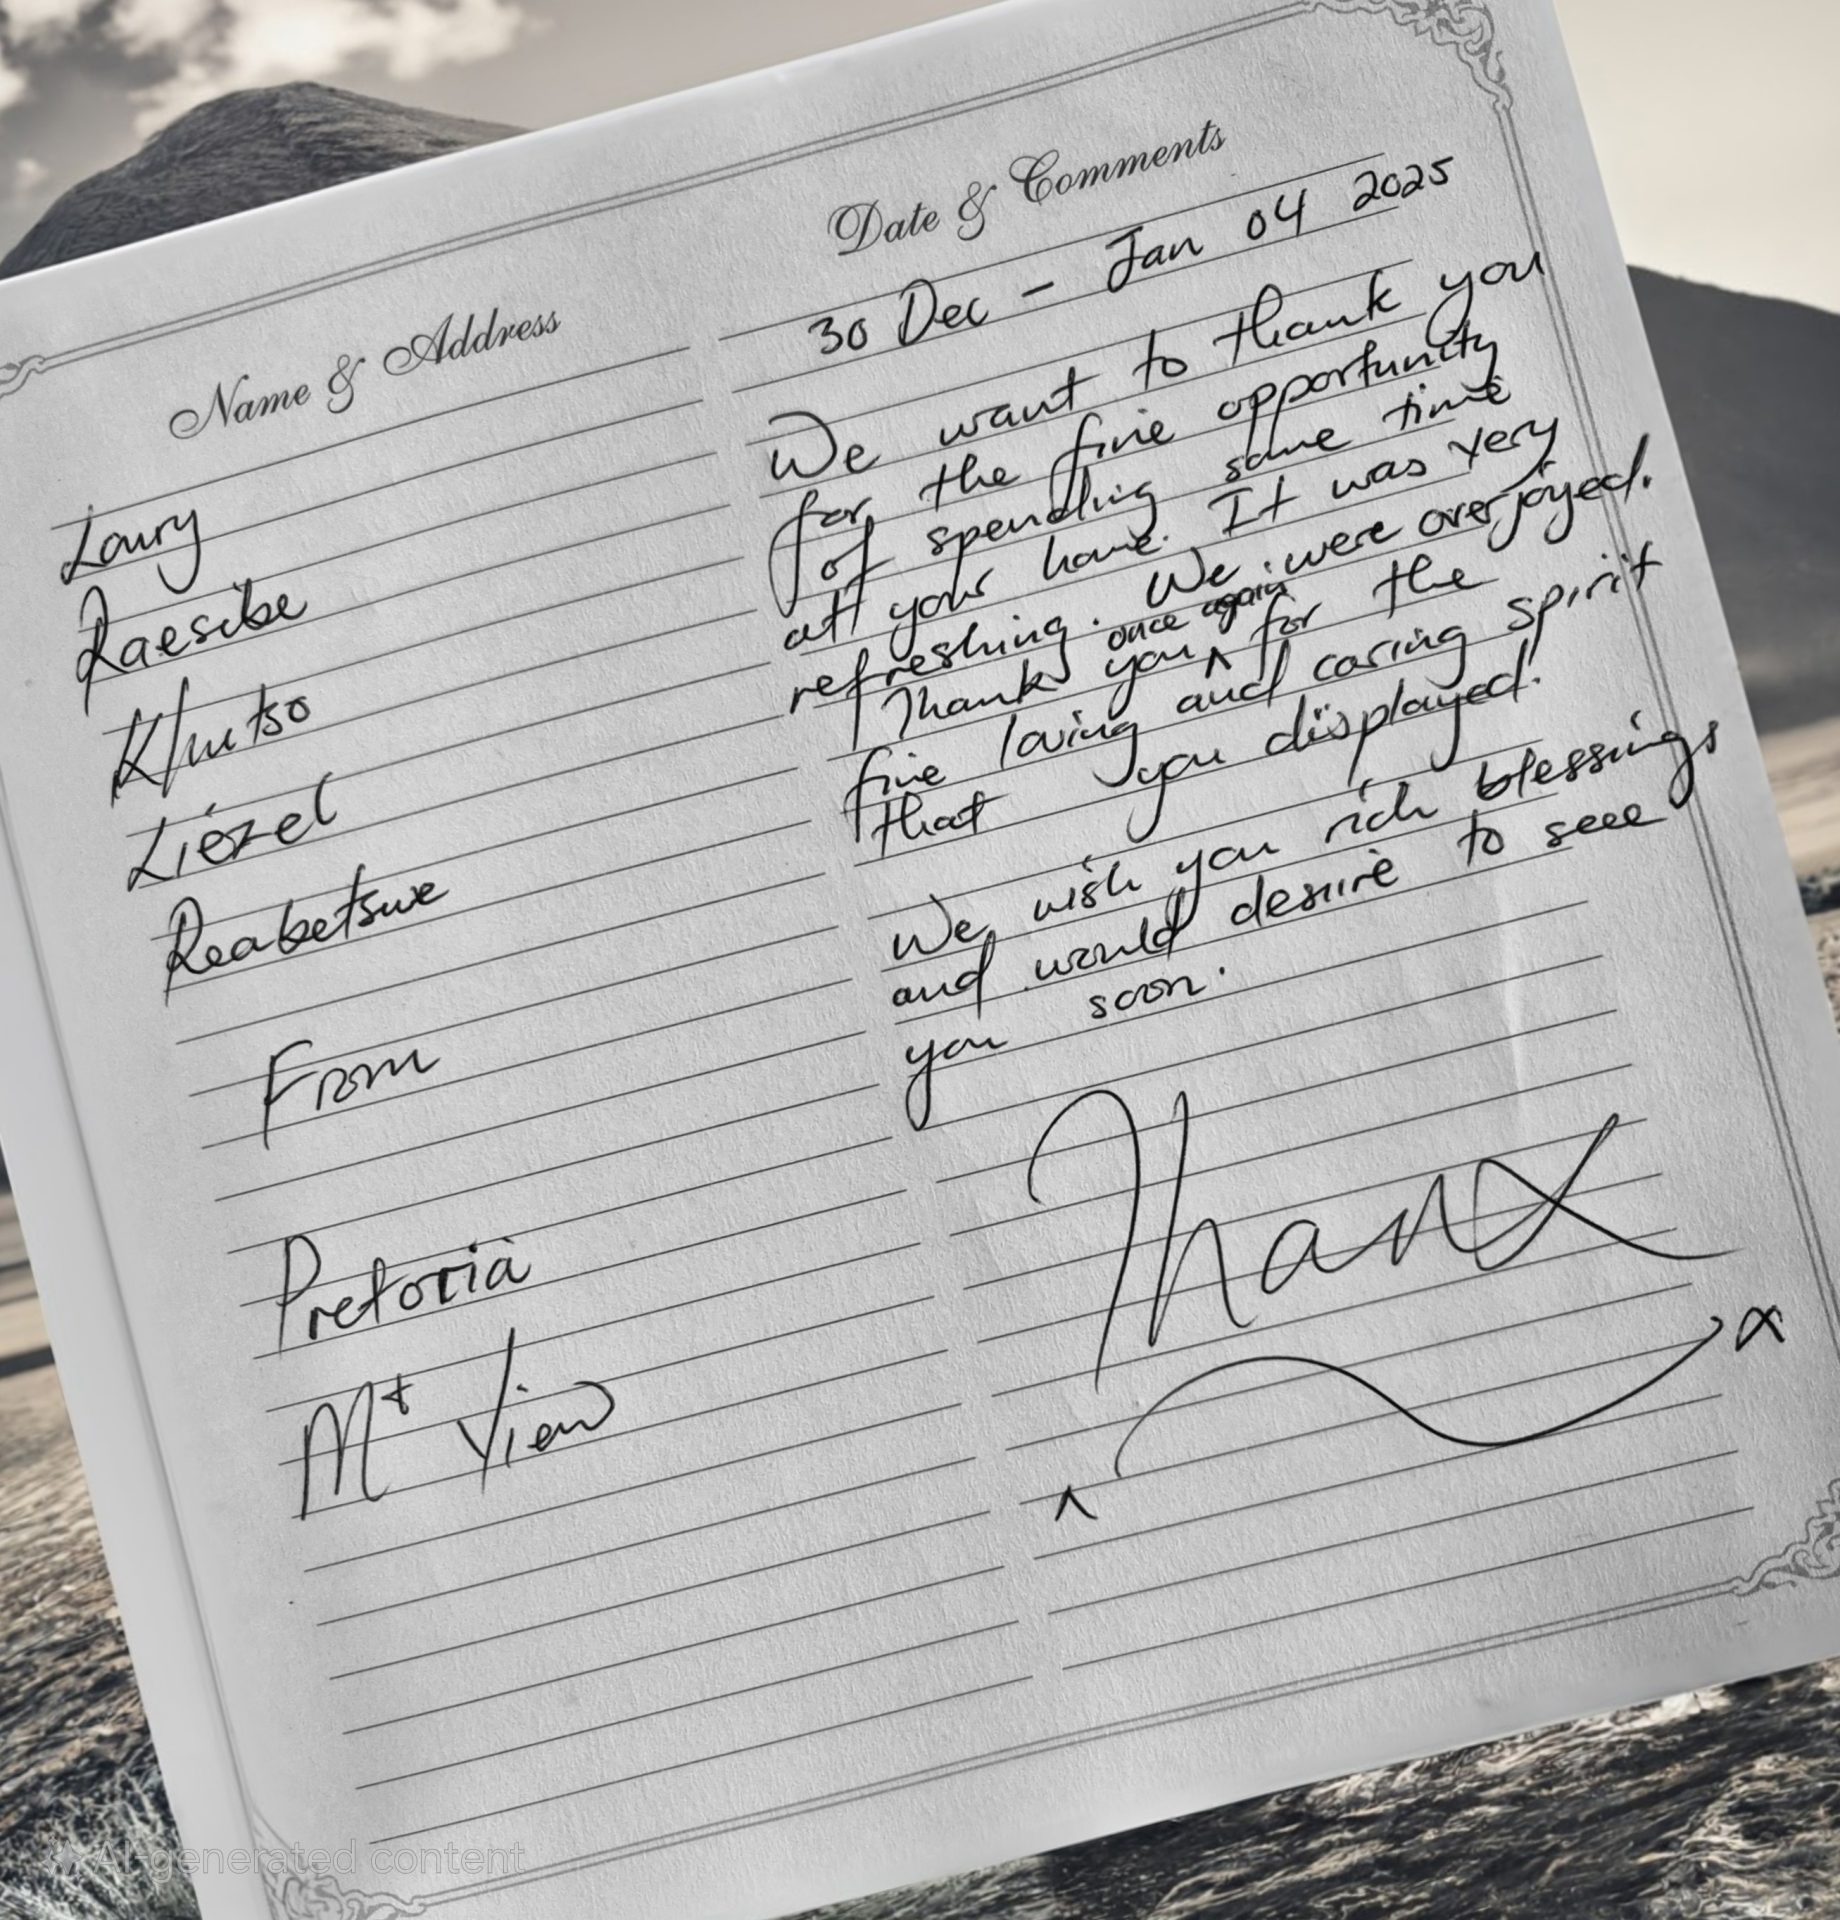 Name & Address
Loury
Raesibe
Khutso
Liezel
Reabetswe
From
Pretoria
Mt View
Date & Comments
30 Dec - Jan 04 2025
We want to thank you
for the fine opportunity
of spending some time
at your home. It was very
refreshing. We were overjoyed.
Thank you once again for the
fine loving and caring spirit
that you displayed.
We wish you rich blessings
and would desire to see
you soon.
Thanx
AI-generated content